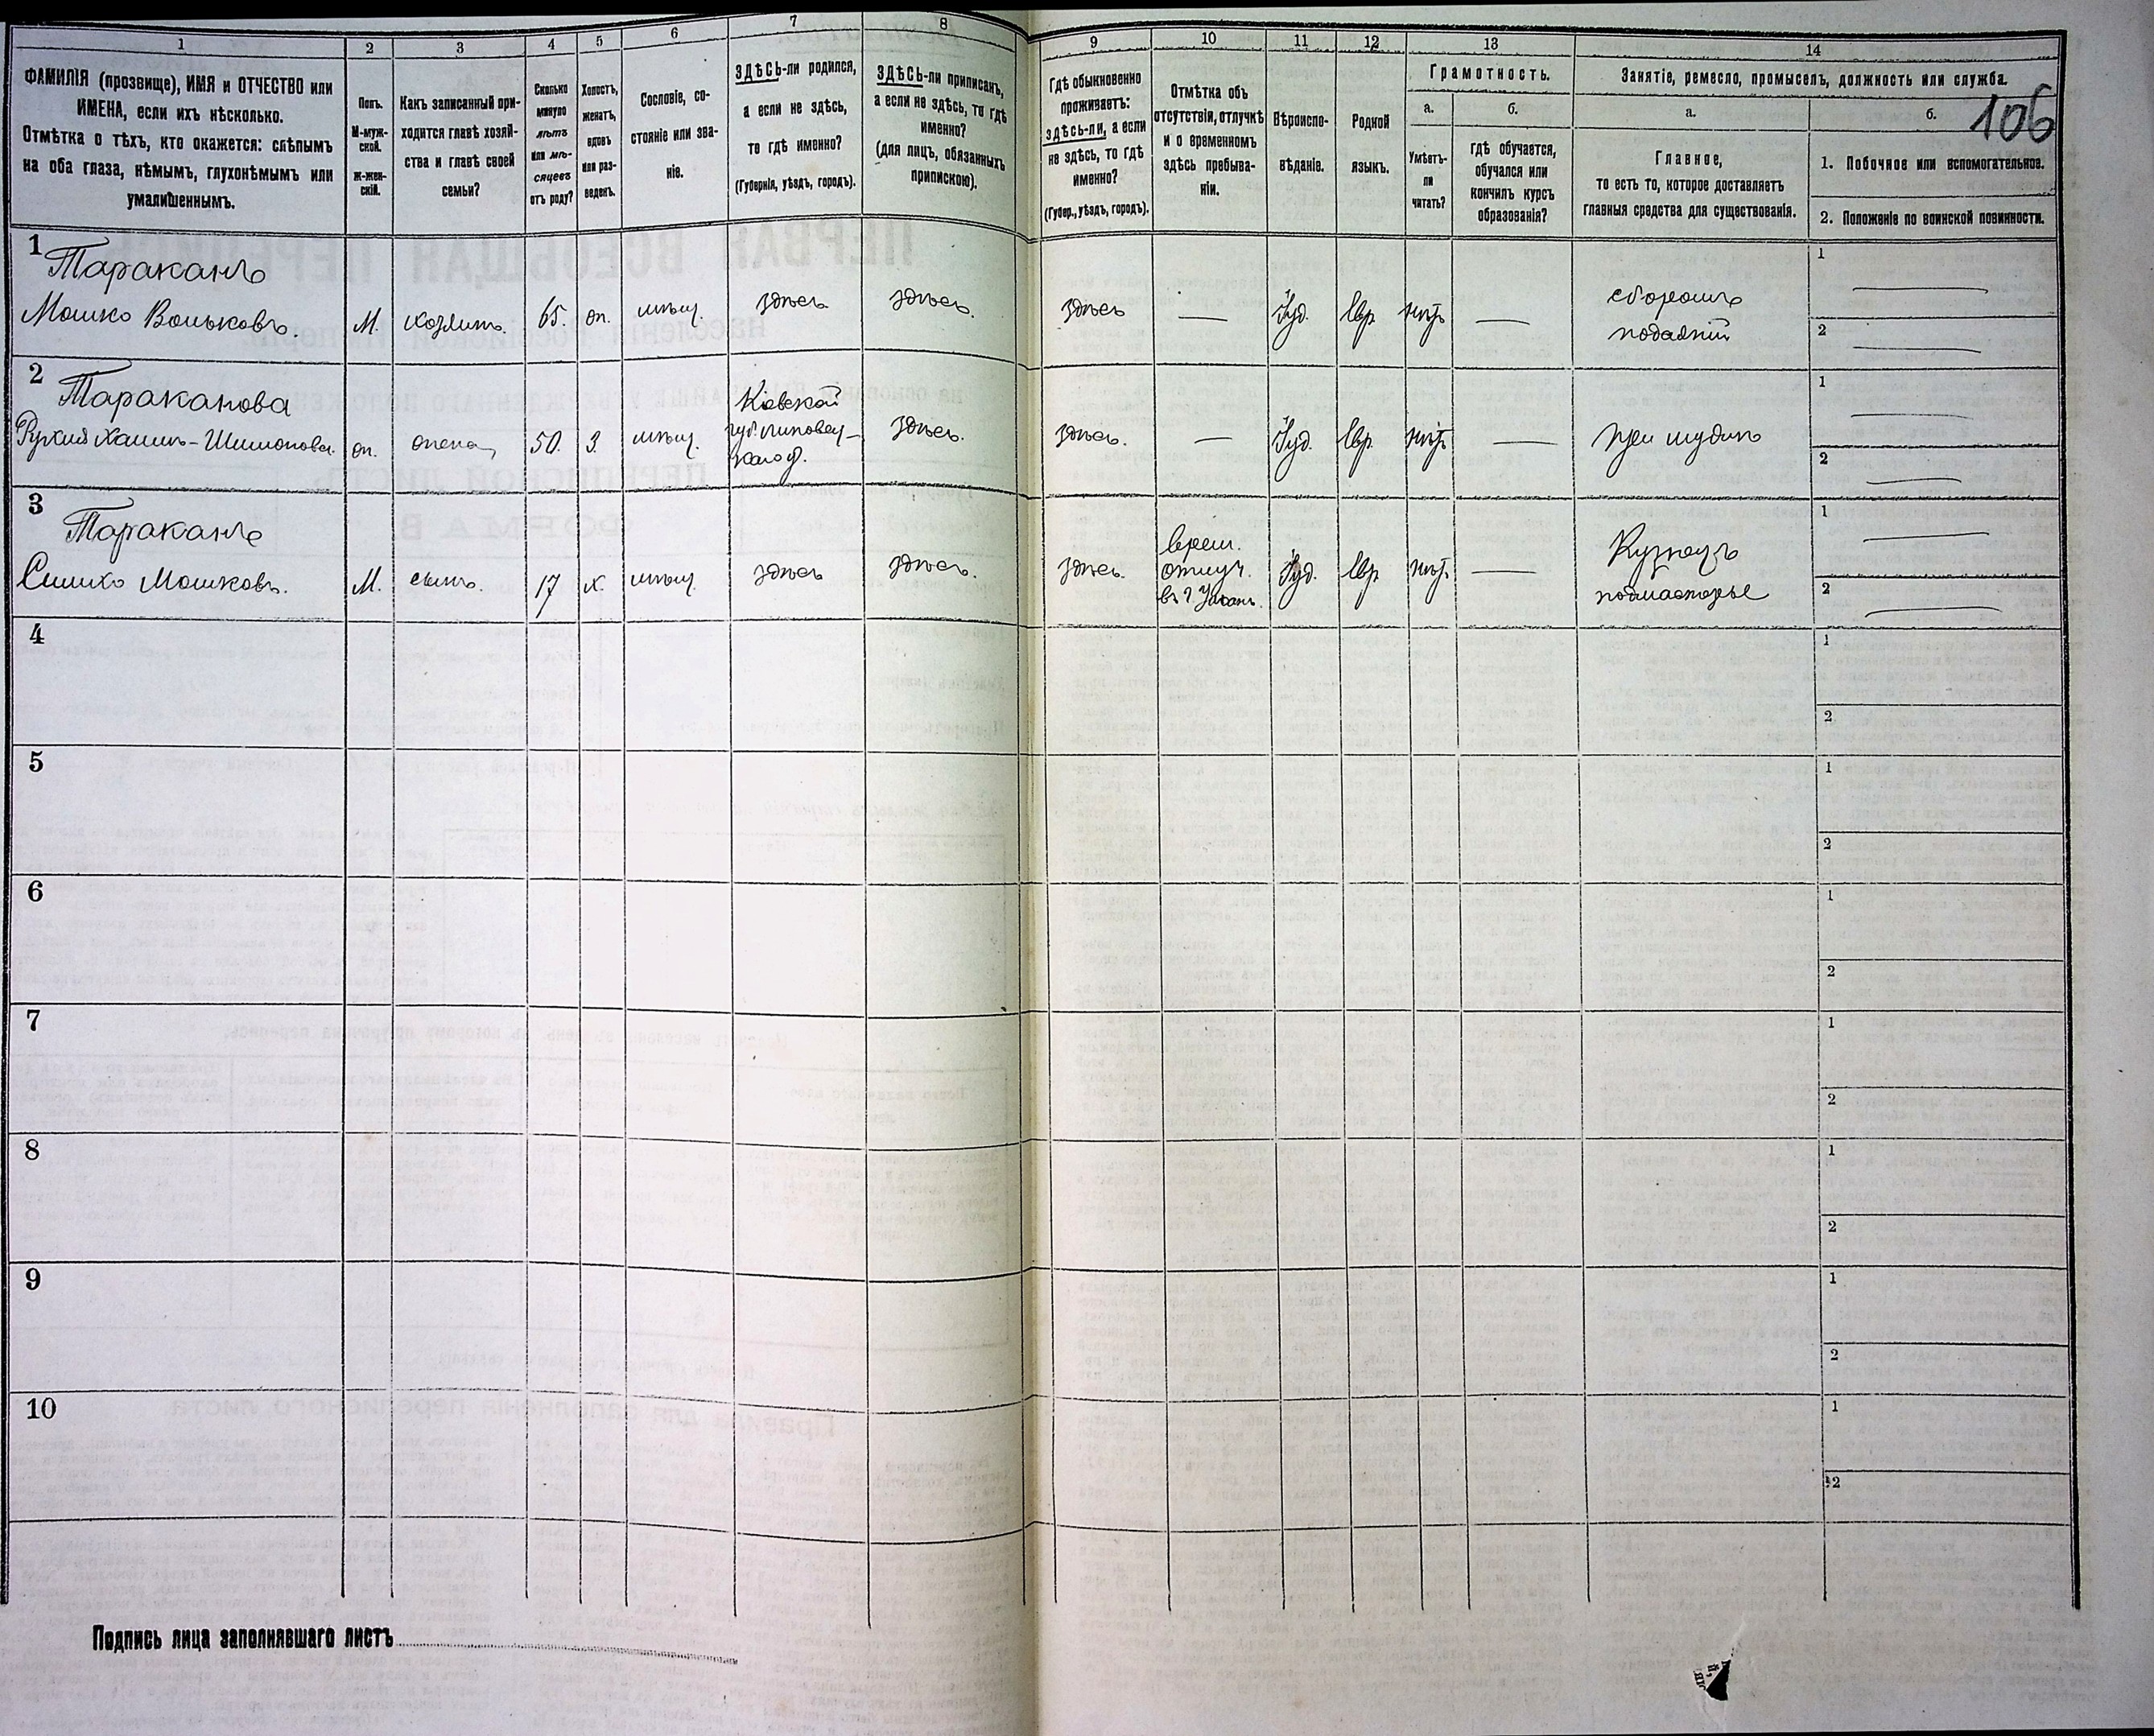 1 2 3 4 5 6 7 8 9 10 11 12 13 14
106
ФАМИЛІЯ (прозвище), ИМЯ и ОТЧЕСТВО или
ИМЕНА, если ихъ нѣсколько.
Отмѣтка о тѣхъ, кто окажется: слѣпымъ
на оба глаза, нѣмымъ, глухонѣмымъ или
умалишеннымъ.
Полъ.
М-муж-
ской.
Ж-жен-
скій.
Какъ записанный при-
ходится главѣ хозяй-
ства и главѣ своей
семьи?
Сколько
минуло
лѣтъ
или мѣ-
сяцевъ
отъ роду?
Холостъ,
женатъ,
вдовъ
или раз-
веденъ.
Сословіе, со-
стояніе или зва-
ніе.
ЗДѢСЬ-ли родился,
а если не здѣсь,
то гдѣ именно?
(Губернія, уѣздъ, городъ).
ЗДѢСЬ-ли приписанъ,
а если не здѣсь, то гдѣ
именно?
(для лицъ, обязанныхъ
припискою).
Гдѣ обыкновенно
проживаетъ:
здѣсь-ли, а если
не здѣсь, то гдѣ
именно?
(Губер., уѣздъ, городъ).
Отмѣтка объ
отсутствіи, отлучкѣ
и о временномъ
здѣсь пребыва-
ніи.
Вѣроиспо-
вѣданіе.
Родной
языкъ.
Грамотность.
а.
Умѣетъ-
ли
читать?
б.
гдѣ обучается,
обучался или
кончилъ курсъ
образованія?
Занятіе, ремесло, промыселъ, должность или служба.
а.
Главное,
то есть то, которое доставляетъ
главныя средства для существованія.
б.
1. Побочное или вспомогательное.
2. Положеніе по воинской повинности.
1
Тараканъ
Мошко Воньковъ
М.
хозяинъ.
65.
мѣщ.
здѣсь
здѣсь.
здѣсь
Іуд.
Евр.
нѣтъ
сборомъ
подаяній
1
2
2
Тараканова
50.
З.
мѣщ.
Кіевской
здѣсь.
здѣсь.
Іуд.
Евр.
нѣтъ
при мужѣ
1
2
3
Тараканъ
Симхо Мошковъ.
М.
сынъ.
17
х.
мѣщ.
здѣсь
здѣсь.
здѣсь.
врем.
отлуч.
въ г. Умань.
Іуд.
Евр.
нѣтъ.
Кузнецъ
подмастерье
1
2
4
1
2
5
1
2
6
1
2
7
1
2
8
1
2
9
1
2
10
1
2
Подпись лица заполнявшаго листъ